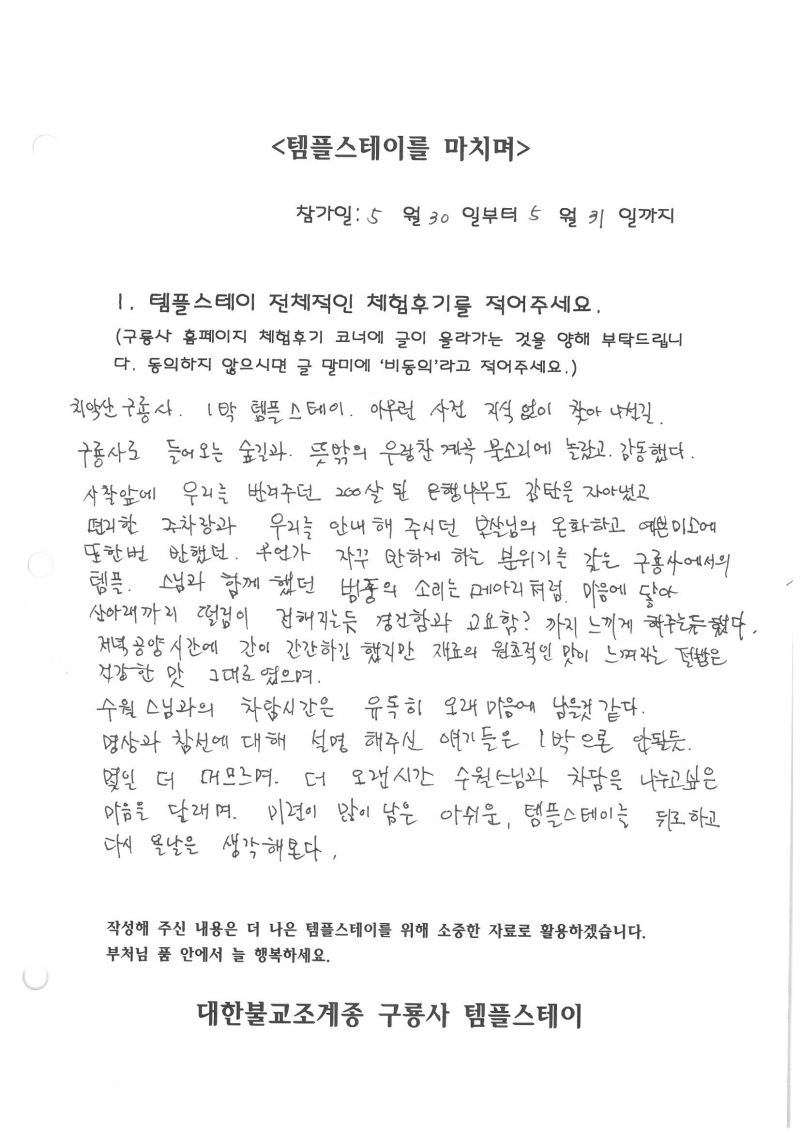 <템플스테이를 마치며>
참가일: 5 월 30 일부터 5 월 31 일까지
1. 템플스테이 전체적인 체험후기를 적어주세요.
(구룡사 홈페이지 체험후기 코너에 글이 올라가는 것을 양해 부탁드립니
다. 동의하지 않으시면 글 말미에 '비동의'라고 적어주세요.)
치악산 구룡사. 1박 템플스테이. 아무런 사전 지식 없이 찾아 나선길.
구룡사로 들어오는 숲길과. 뜻밖의 우람찬 계곡 물소리에 놀랐고. 감동했다.
사찰앞에 우리를 반겨주던 200살 된 은행나무도 감탄을 자아냈고
편리한 주차장과 우리를 안내해 주시던 보살님의 온화하고 예쁜미소에
또한번 반했던. 무언가 자꾸 반하게 하는 분위기를 갖은 구룡사에서의
템플. 스님과 함께 했던 범종의 소리는 메아리처럼. 마음에 닿아
산아래까지 떨림이 전해지는듯 경건함과 고요함? 까지 느끼게 해주는듯 했다.
저녁공양시간에 간이 간간하긴 했지만 재료의 원초적인 맛이 느껴지는 절밥은
건강한 맛 그대로였으며.
수월스님과의 차담시간은 유독히 오래 마음에 남을것 같다.
명상과 참선에 대해 설명 해주신 얘기들은 1박으론 안될듯.
몇일 더 머므르며. 더 오랜시간 수월스님과 차담을 나누고싶은
마음을 달래며. 미련이 많이 남은 아쉬운, 템플스테이를 뒤로하고
다시 올날을 생각해본다.
작성해 주신 내용은 더 나은 템플스테이를 위해 소중한 자료로 활용하겠습니다.
부처님 품 안에서 늘 행복하세요.
대한불교조계종 구룡사 템플스테이